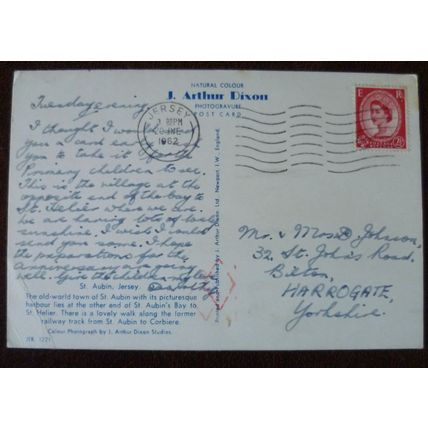 NATURAL COLOUR
J. Arthur Dixon
PHOTOGRAVURE
POST CARD
JERSEY
PM
20 JNE
1962
E R
2½
Tuesday evening
I thought I would
you a card
you to take it for the
Primary children to see.
This is the village at the
opposite end of the bay to
St. Helier where we are.
We are having lots of
sunshine. I wish I could
send you some. I hope
the preparations for the
Anniversary are going
well. Give the children my love
Dorothy
St. Aubin, Jersey.
The old-world town of St. Aubin with its picturesque
harbour lies at the other end of St. Aubin's Bay to
St. Helier. There is a lovely walk along the former
railway track from St. Aubin to Corbiere.
Colour Photograph by J. Arthur Dixon Studios.
Printed and Published by J. Arthur Dixon Ltd., Newport, I.W., England.
Mr. & Mrs D. Johnson,
32, St. John's Road,
Bilton,
HARROGATE,
Yorkshire.